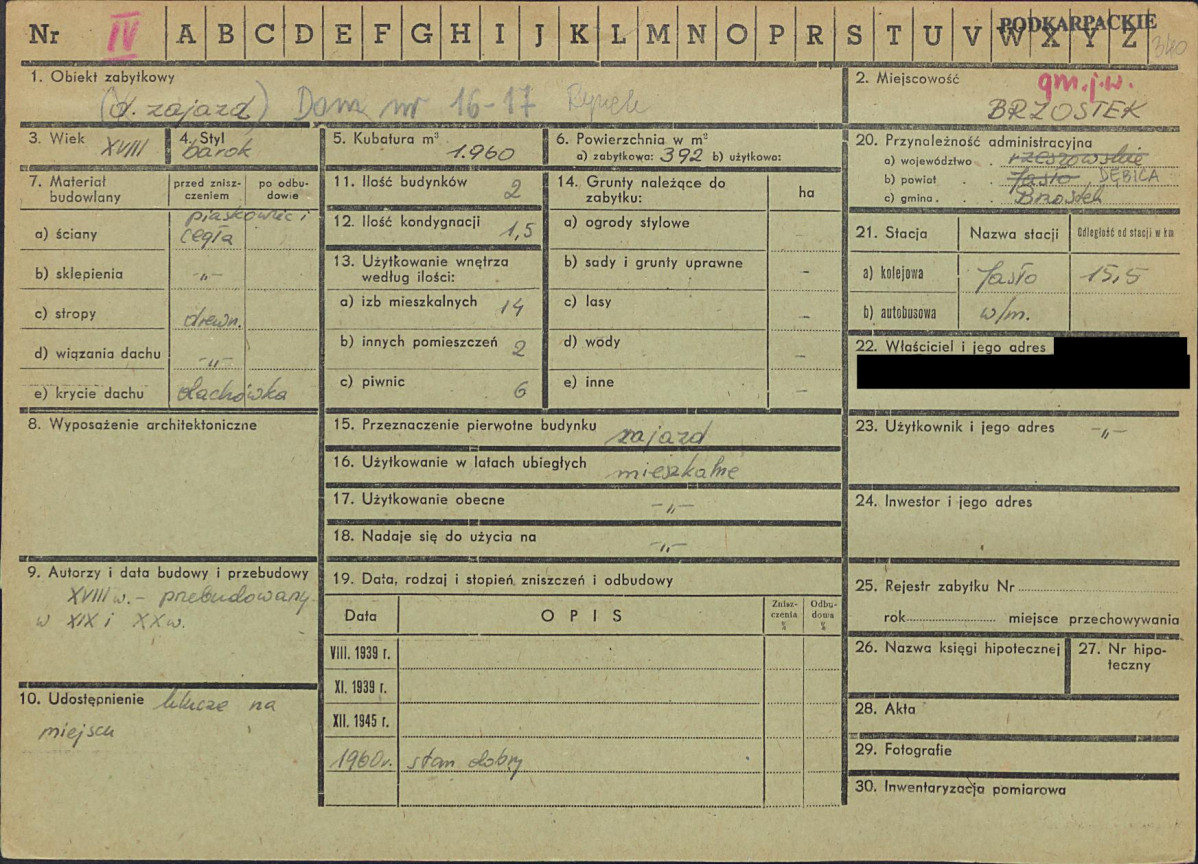 Nr IV A B C D E F G H I J K L M N O P R S T U V W X Y Z
PODKARPACKIE
340
1. Obiekt zabytkowy
(d. zajazd) Dom nr 16-17 Rynek
2. Miejscowość
gm. j.w.
BRZOSTEK
3. Wiek XVIII
4. Styl
barok
5. Kubatura m³
1.960
6. Powierzchnia w m²
a) zabytkowa: 392 b) użytkowa:
7. Materiał budowlany
przed zniszczeniem
po odbudowie
a) ściany piaskowiec i cegła
b) sklepienia -„-
c) stropy drewn.
d) wiązania dachu -„-
e) krycie dachu dachówka
8. Wyposażenie architektoniczne
9. Autorzy i data budowy i przebudowy
XVIII w. - przebudowany
w XIX i XX w.
10. Udostępnienie klucze na
miejscu
11. Ilość budynków 2
12. Ilość kondygnacji 1,5
13. Użytkowanie wnętrza
według ilości:
a) izb mieszkalnych 14
b) innych pomieszczeń 2
c) piwnic 6
14. Grunty należące do
zabytku:
ha
a) ogrody stylowe -
b) sady i grunty uprawne -
c) lasy -
d) wody -
e) inne -
15. Przeznaczenie pierwotne budynku zajazd
16. Użytkowanie w latach ubiegłych mieszkalne
17. Użytkowanie obecne -„-
18. Nadaje się do użycia na -„-
19. Data, rodzaj i stopień zniszczeń i odbudowy
Data OPIS Zniszczenia % Odbudowa %
VIII. 1939 r.
XI. 1939 r.
XII. 1945 r.
1960 r. stan dobry
20. Przynależność administracyjna
a) województwo . rzeszowskie
b) powiat . . Jasło DĘBICA
c) gmina . . Brzostek
21. Stacja Nazwa stacji Odległość od stacji w km
a) kolejowa Jasło 15,5
b) autobusowa w/m.
22. Właściciel i jego adres
23. Użytkownik i jego adres -„-
24. Inwestor i jego adres
25. Rejestr zabytku Nr
rok miejsce przechowywania
26. Nazwa księgi hipotecznej
27. Nr hipoteczny
28. Akta
29. Fotografie
30. Inwentaryzacja pomiarowa